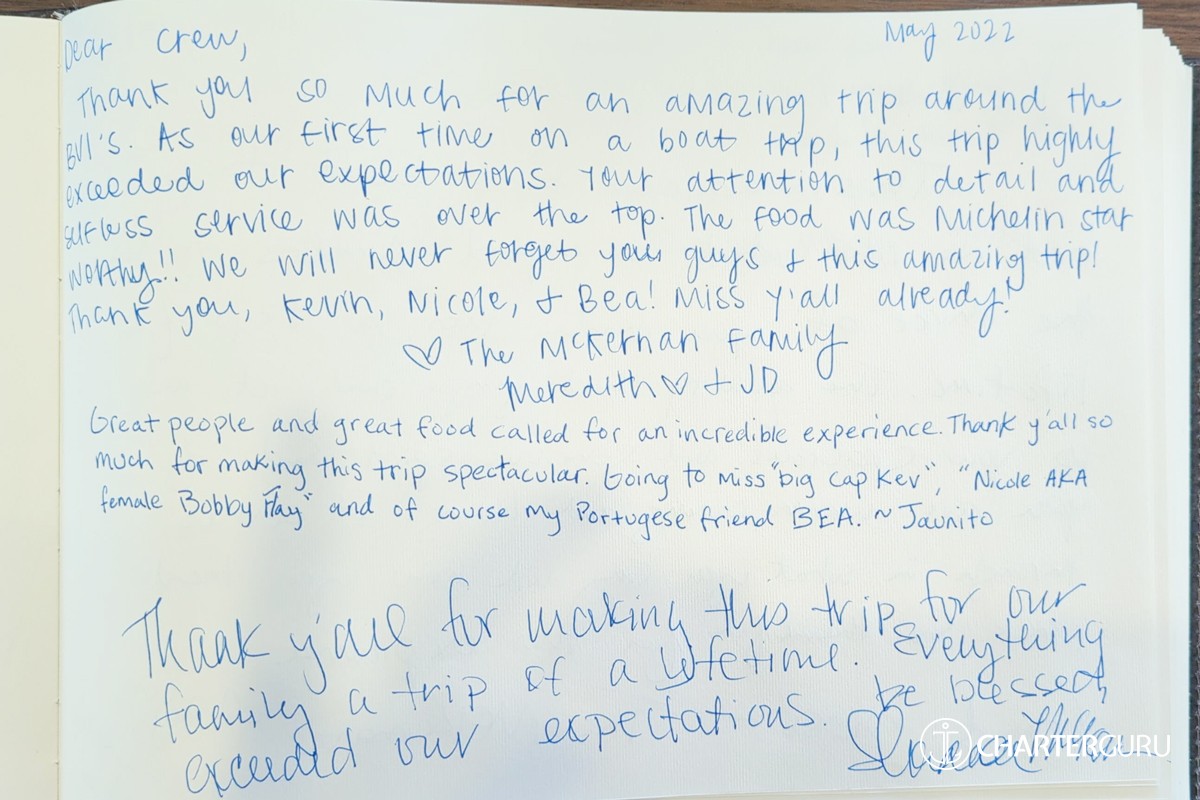 May 2022
Dear Crew,
Thank you so much for an amazing trip around the
BVI's. As our first time on a boat trip, this trip highly
exceeded our expectations. Your attention to detail and
selfless service was over the top. The food was Michelin star
worthy!! We will never forget you guys + this amazing trip!
Thank you, Kevin, Nicole, + Bea! Miss y'all already!
♡ The McKernan Family
Meredith ♡ + JD
Great people and great food called for an incredible experience. Thank y'all so
much for making this trip spectacular. Going to miss "big cap Kev", "Nicole AKA
female Bobby Flay" and of course my Portugese friend BEA. ~ Jaunito
Thank y'all for making this trip for our
family a trip of a lifetime. Everything
exceeded our expectations. be blessed,
CHARTERGURU